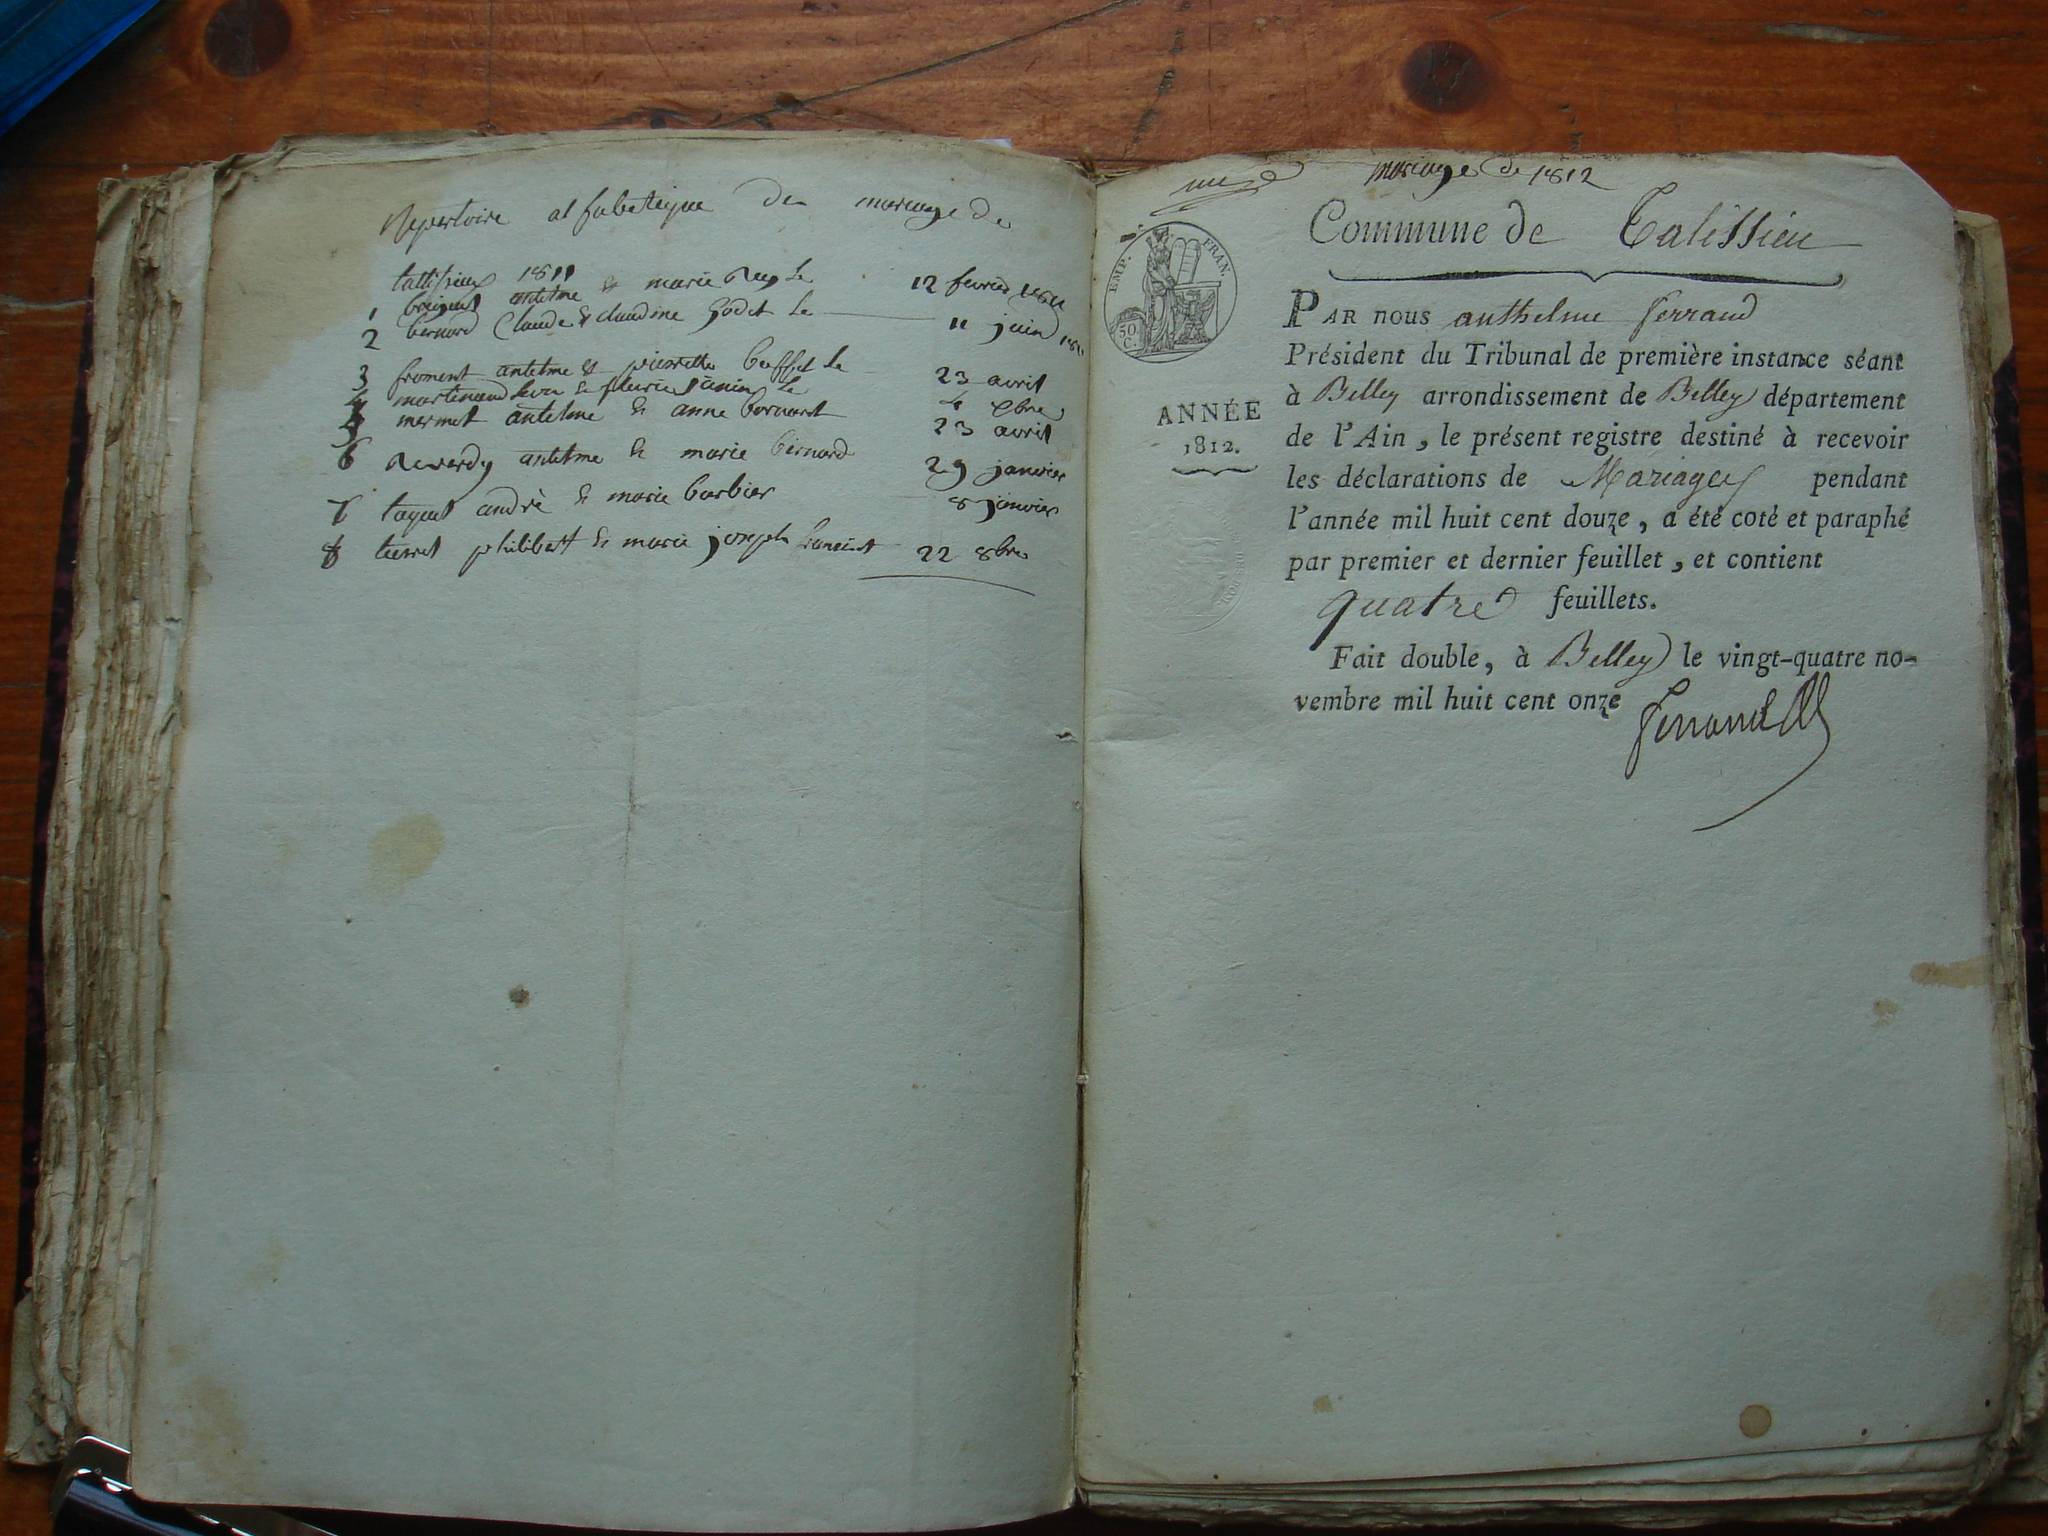 Repertoire alfabetique de mariage de
tallisieux 1811
1 anthelme & marie Rey le 12 fevrier 1811
2 bernard Claude & claudine godet le 11 juin 1811
3 froment antelme & pierrette buffet le 23 avril
4 martinand & fleurie janin le 4 9bre
5 mermet antelme & anne bernard 23 avril
6 Reverdy antelme & marie bernard 29 janvier
7 andré & marie barbier 8 janvier
8 philibert & marie joseph 22 8bre
mariage de 1812
Commune de Talissieu
EMP. FRAN.
50 C.
PAR nous anthelme ferrand
Président du Tribunal de première instance séant
à Belley arrondissement de Belley département
ANNÉE
1812.
de l'Ain, le présent registre destiné à recevoir
les déclarations de Mariages pendant
l'année mil huit cent douze, a été coté et paraphé
par premier et dernier feuillet, et contient
quatre feuillets.
Fait double, à Belley le vingt-quatre no-
vembre mil huit cent onze
ferrand